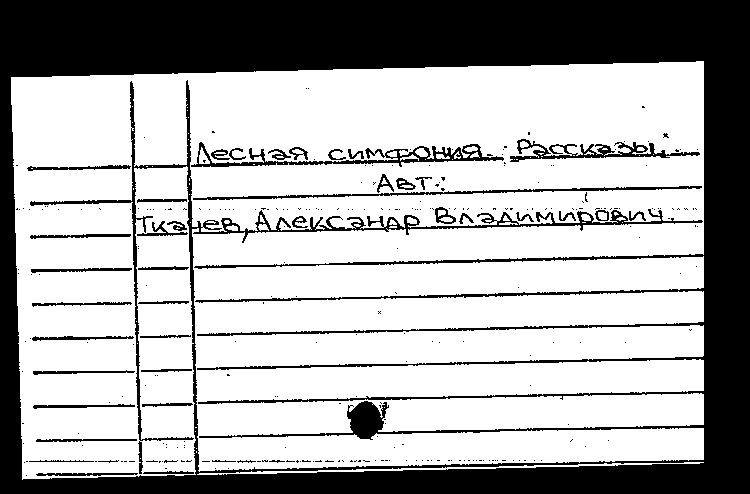 Лесная симфония. Рассказы.
Авт.:
Ткачев, Александр Владимирович.